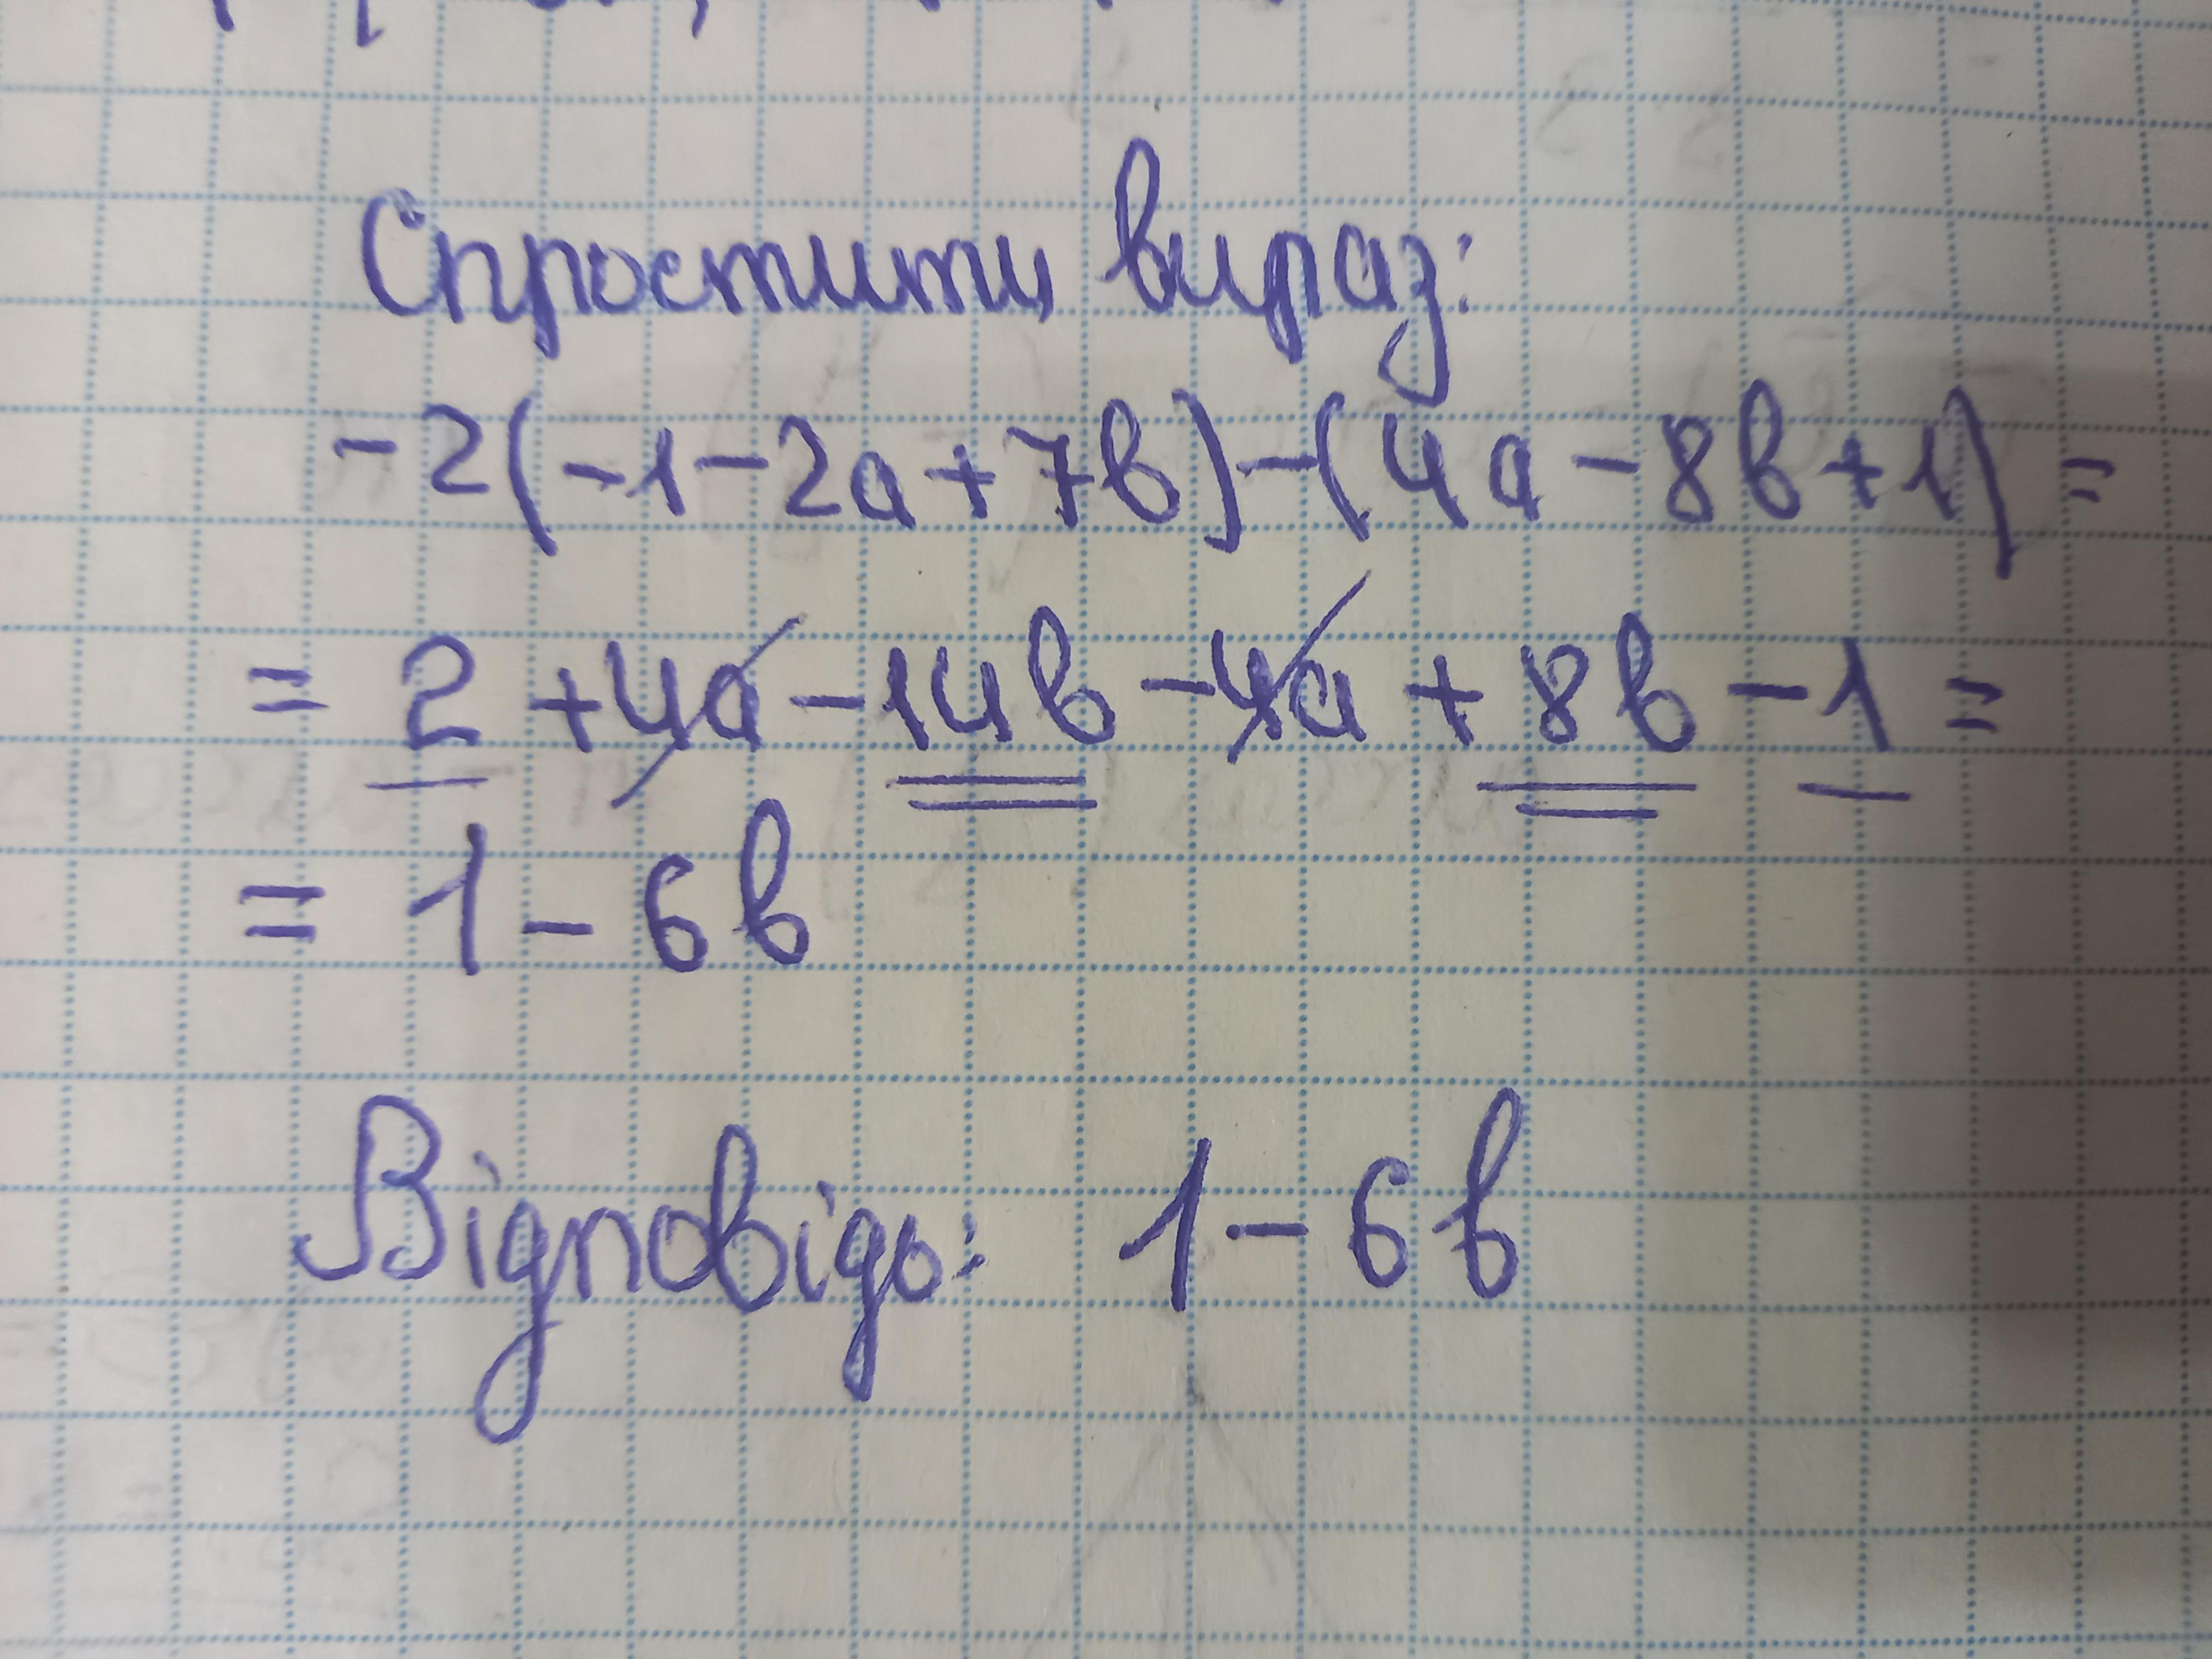 Спростити вираз:
-2(-1-2a+7b)-(4a-8b+1)=
=2+4a-14b-4a+8b-1=
=1-6b
Відповідь: 1-6b